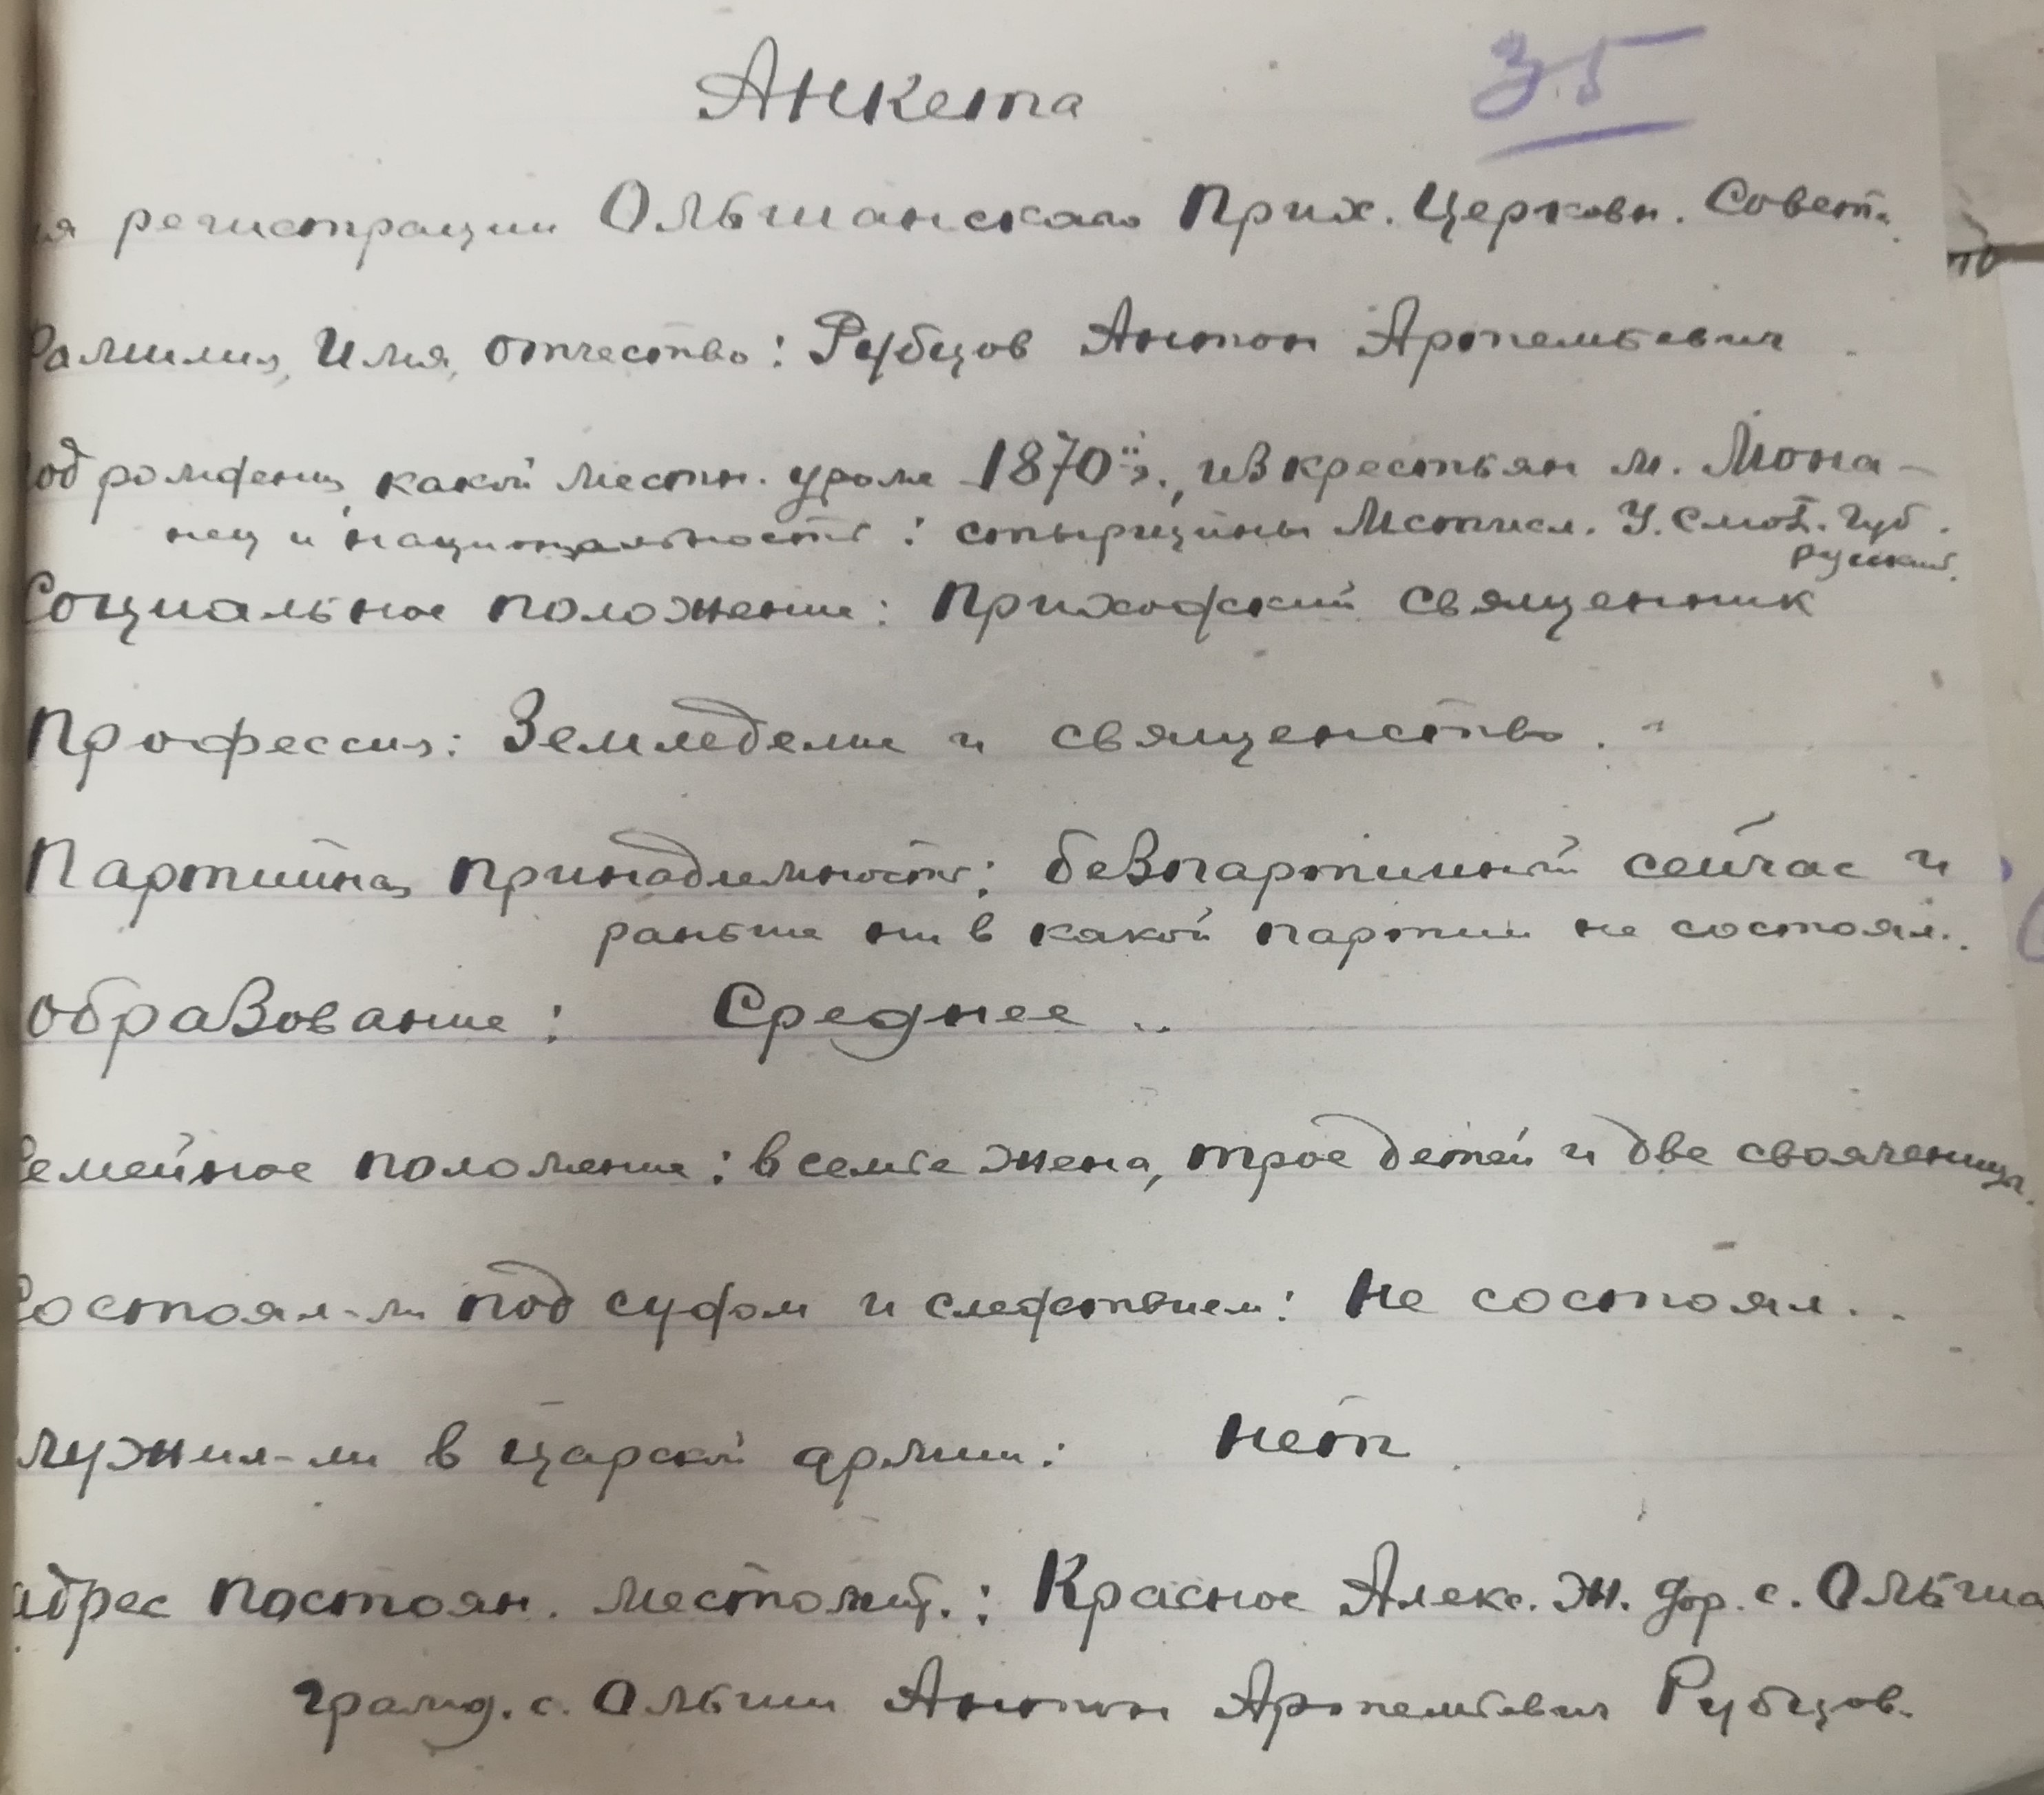 Анкета 35
я регистрации Ольшанского Прих. Церковн. Совета.
Фамилия, Имя, отчество: Рубцов Антон Артемьевич.
од рождения, какой местн. уроже 1870 г., из крестьян м. Мона-
нец и национальность: стырщины Мстисл. У. Смол. Губ.
русский.
Социальное положение: Приходский священник
Профессия: Земледелие и священство.
Партийная принадлежность: безпартийный сейчас и
раньше ни в какой партии не состоял.
образование: Среднее..
Семейное положение: в семье жена, трое детей и две свояченицы.
Состоял-ли под судом и следствием: Не состоял..
лужил-ли в царской армии: Нет.
адрес постоян. местожит.: Красное Алекс. ж. дор. с. Ольша
гражд. с. Ольши Антон Артемьевич Рубцов.